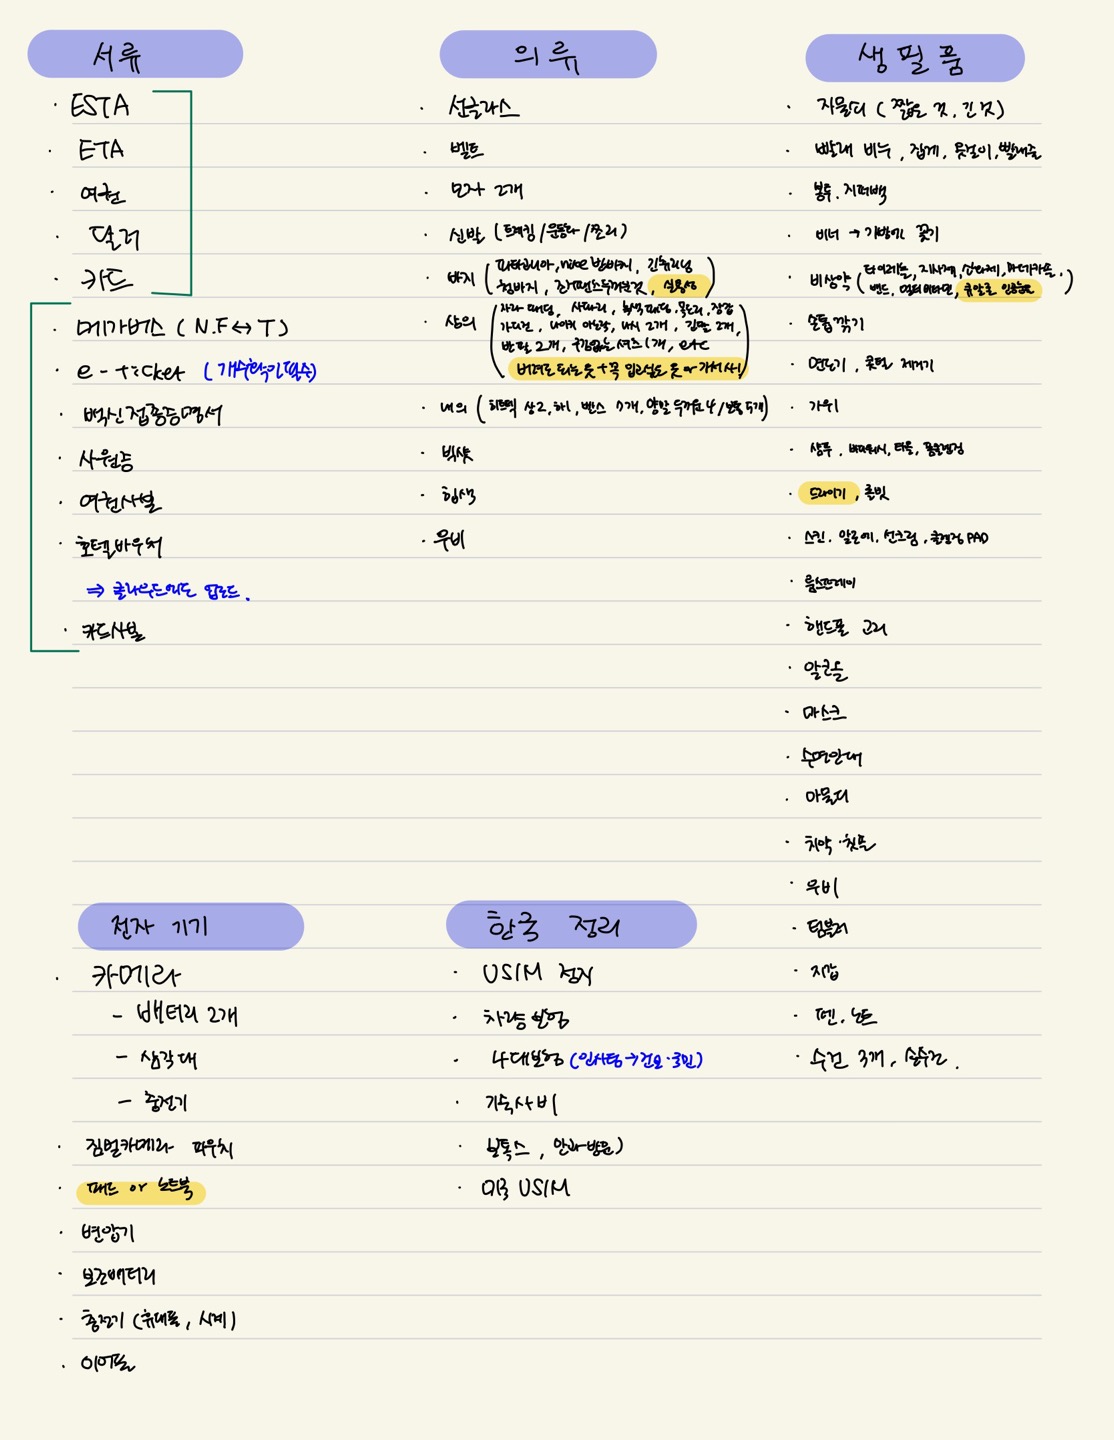 서류
· ESTA
· ETA
· 여권
· 달러
· 카드
· 메가버스 (N.F↔T)
· e-ticket (개수확인필수)
· 백신접종증명서
· 사원증
· 여권사본
· 호텔바우처
⇒ 클라우드에도 업로드.
· 카드사본
의류
· 선글라스
· 벨트
· 모자 2개
· 신발 (트레킹/운동화/쪼리)
· 바지 (파타고니아, nike 반바지, 긴츄리닝
청바지,
· 상의 (자라 패딩, 목도리,
가디건, 나시 2개, 긴팔 2개,
반팔 2개, 셔츠 1개, etc
버려도 되는 옷 + 꼭 입고싶은 옷 or 가서 사)
· 내의 (히트텍 상2, 하1, 7개, 양말 두꺼운 4/ 5개)
· 빅샷
· 힙색
· 우비
생필품
· 자물쇠 (짧은 것, 긴 것)
· 빨래 비누, 집게, 옷걸이, 빨래줄
· 봉투, 지퍼백
· 비너 → 가방에 꽂기
· 비상약 (타이레놀, 지사제, 소화제, 마데카솔,
밴드, 멀티비타민, 인공눈물)
· 손톱깎기
· 면도기, 제거기
· 가위
· 샴푸, 바디워시, 타올, 폼클렌징
· 드라이기, 롤빗
· 스킨, 알로에, 선크림, 클렌징 PAD
· 룸스프레이
· 핸드폰 고리
· 알콜솜
· 마스크
· 수면안대
· 아물디
· 치약·칫솔
· 우비
· 텀블러
· 지갑
· 펜, 노트
· 수건 3개, 손수건.
전자 기기
· 카메라
- 배터리 2개
- 삼각대
- 충전기
· 짐벌카메라 파우치
· 패드 or 노트북
· 변압기
· 보조배터리
· 충전기 (휴대폰, 시계)
· 이어폰
한국 정리
· USIM 정지
· 차량보험
· 4대보험 (인사팀→건보·국민)
· 기숙사비
· 보톡스, 안과방문)
· 미국 USIM